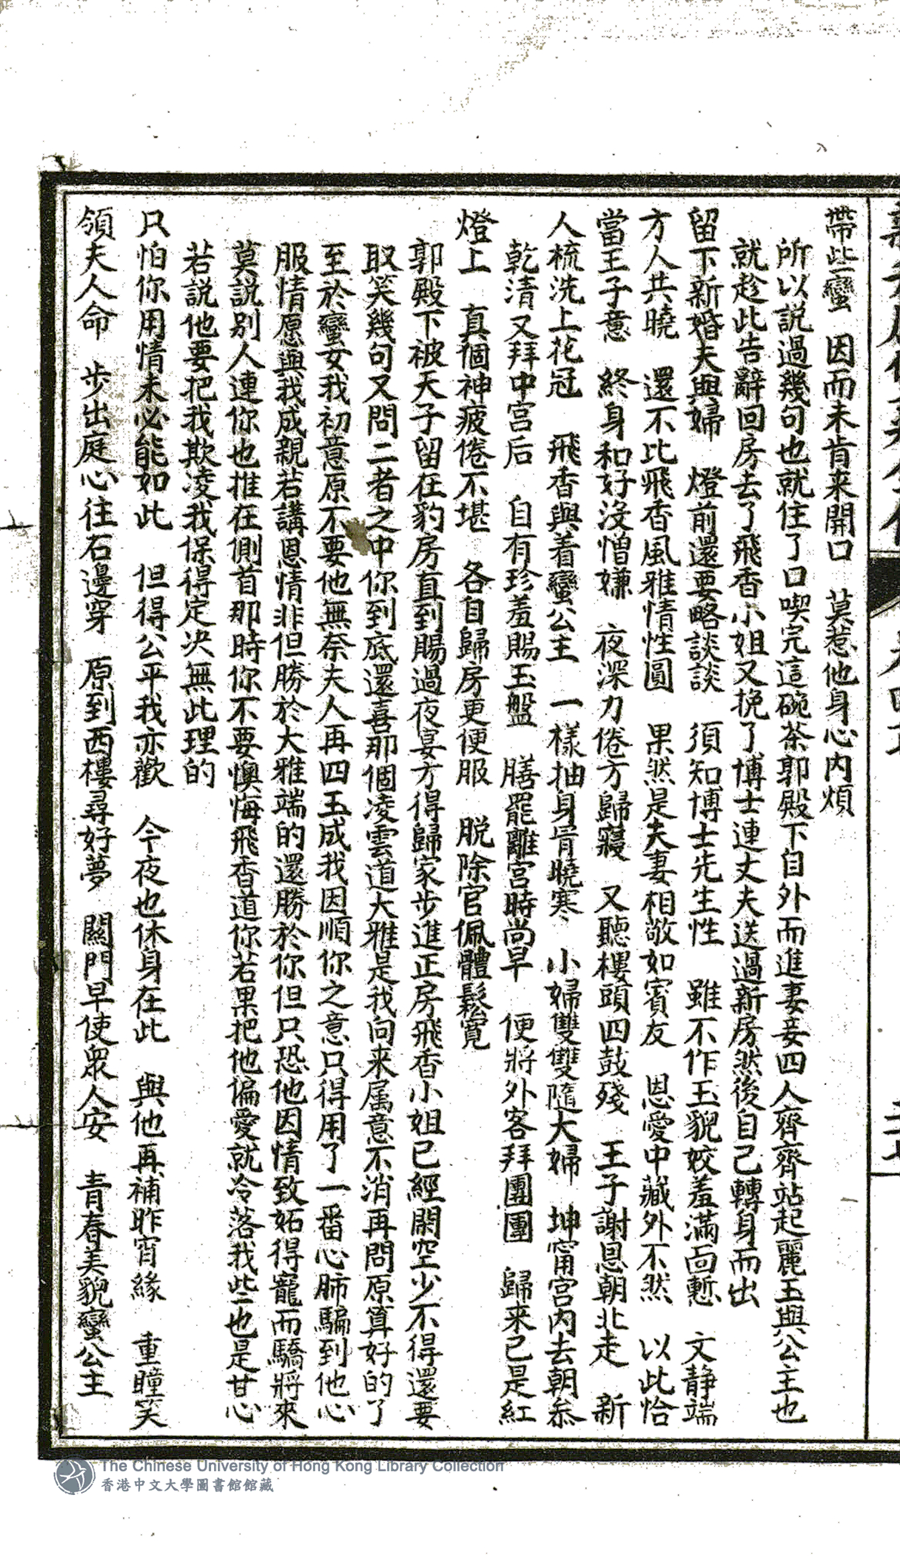 帶些蠻　因而未肯来開口　莫惹他身心内煩
所以説過幾句也就住了口喫完這碗茶郭殿下自外而進妻妾四人齊齊站起麗玉與公主也
就趁此告辭回房去了飛香小姐又挽了博士連丈夫送過新房然後自己轉身而出
留下新婚夫與婦　燈前還要略談談　須知博士先生性　雖不作玉貌姣羞滿面慙　文静端
方人共曉　還不比飛香風雅情性圓　果然是夫妻相敬如賓友　恩愛中藏外不然　以此恰
當王子意　終身和好没憎嫌　夜深力倦方歸寢　又聽樓頭四鼓殘　王子謝恩朝北走　新
人梳洗上花冠　飛香與着蠻公主　一樣抽身骨曉寒　小婦雙雙隨大婦　坤甯宫内去朝叅
乾清又拜中宫后　自有珍羞賜玉盤　膳罷離宫時尚早　便將外客拜團團　歸来已是紅
燈上　真個神疲倦不堪　各自歸房更便服　脱除官佩體鬆寛
郭殿下被天子留在豹房直到賜過夜宴方得歸家步進正房飛香小姐已經閑空少不得還要
取笑幾句又問二者之中你到底還喜那個凌雲道大雅是我向来属意不消再問原算好的了
至於蠻女我初意原不要他無奈夫人再四玉成我因順你之意只得用了一番心肺騙到他心
服情愿與我成親若講恩情非但勝於大雅端的還勝於你但只恐他因情致妬得寵而驕將來
莫説别人連你也推在側首那時你不要懊悔飛香道你若果把他偏愛就冷落我些也是甘心
若説他要把我欺凌我保得定决無此理的
只怕你用情未必能如此　但得公平我亦歡　今夜也休身在此　與他再補昨宵緣　重瞳笑
領夫人命　步出庭心往石邊穿　原到西樓尋好夢　關門早使衆人安　青春美貌蠻公主
The Chinese University of Hong Kong Library Collection
香港中文大學圖書館館藏